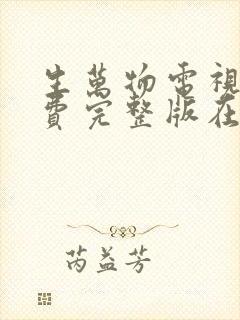 生萬物電視
費完整版在
芮益芳